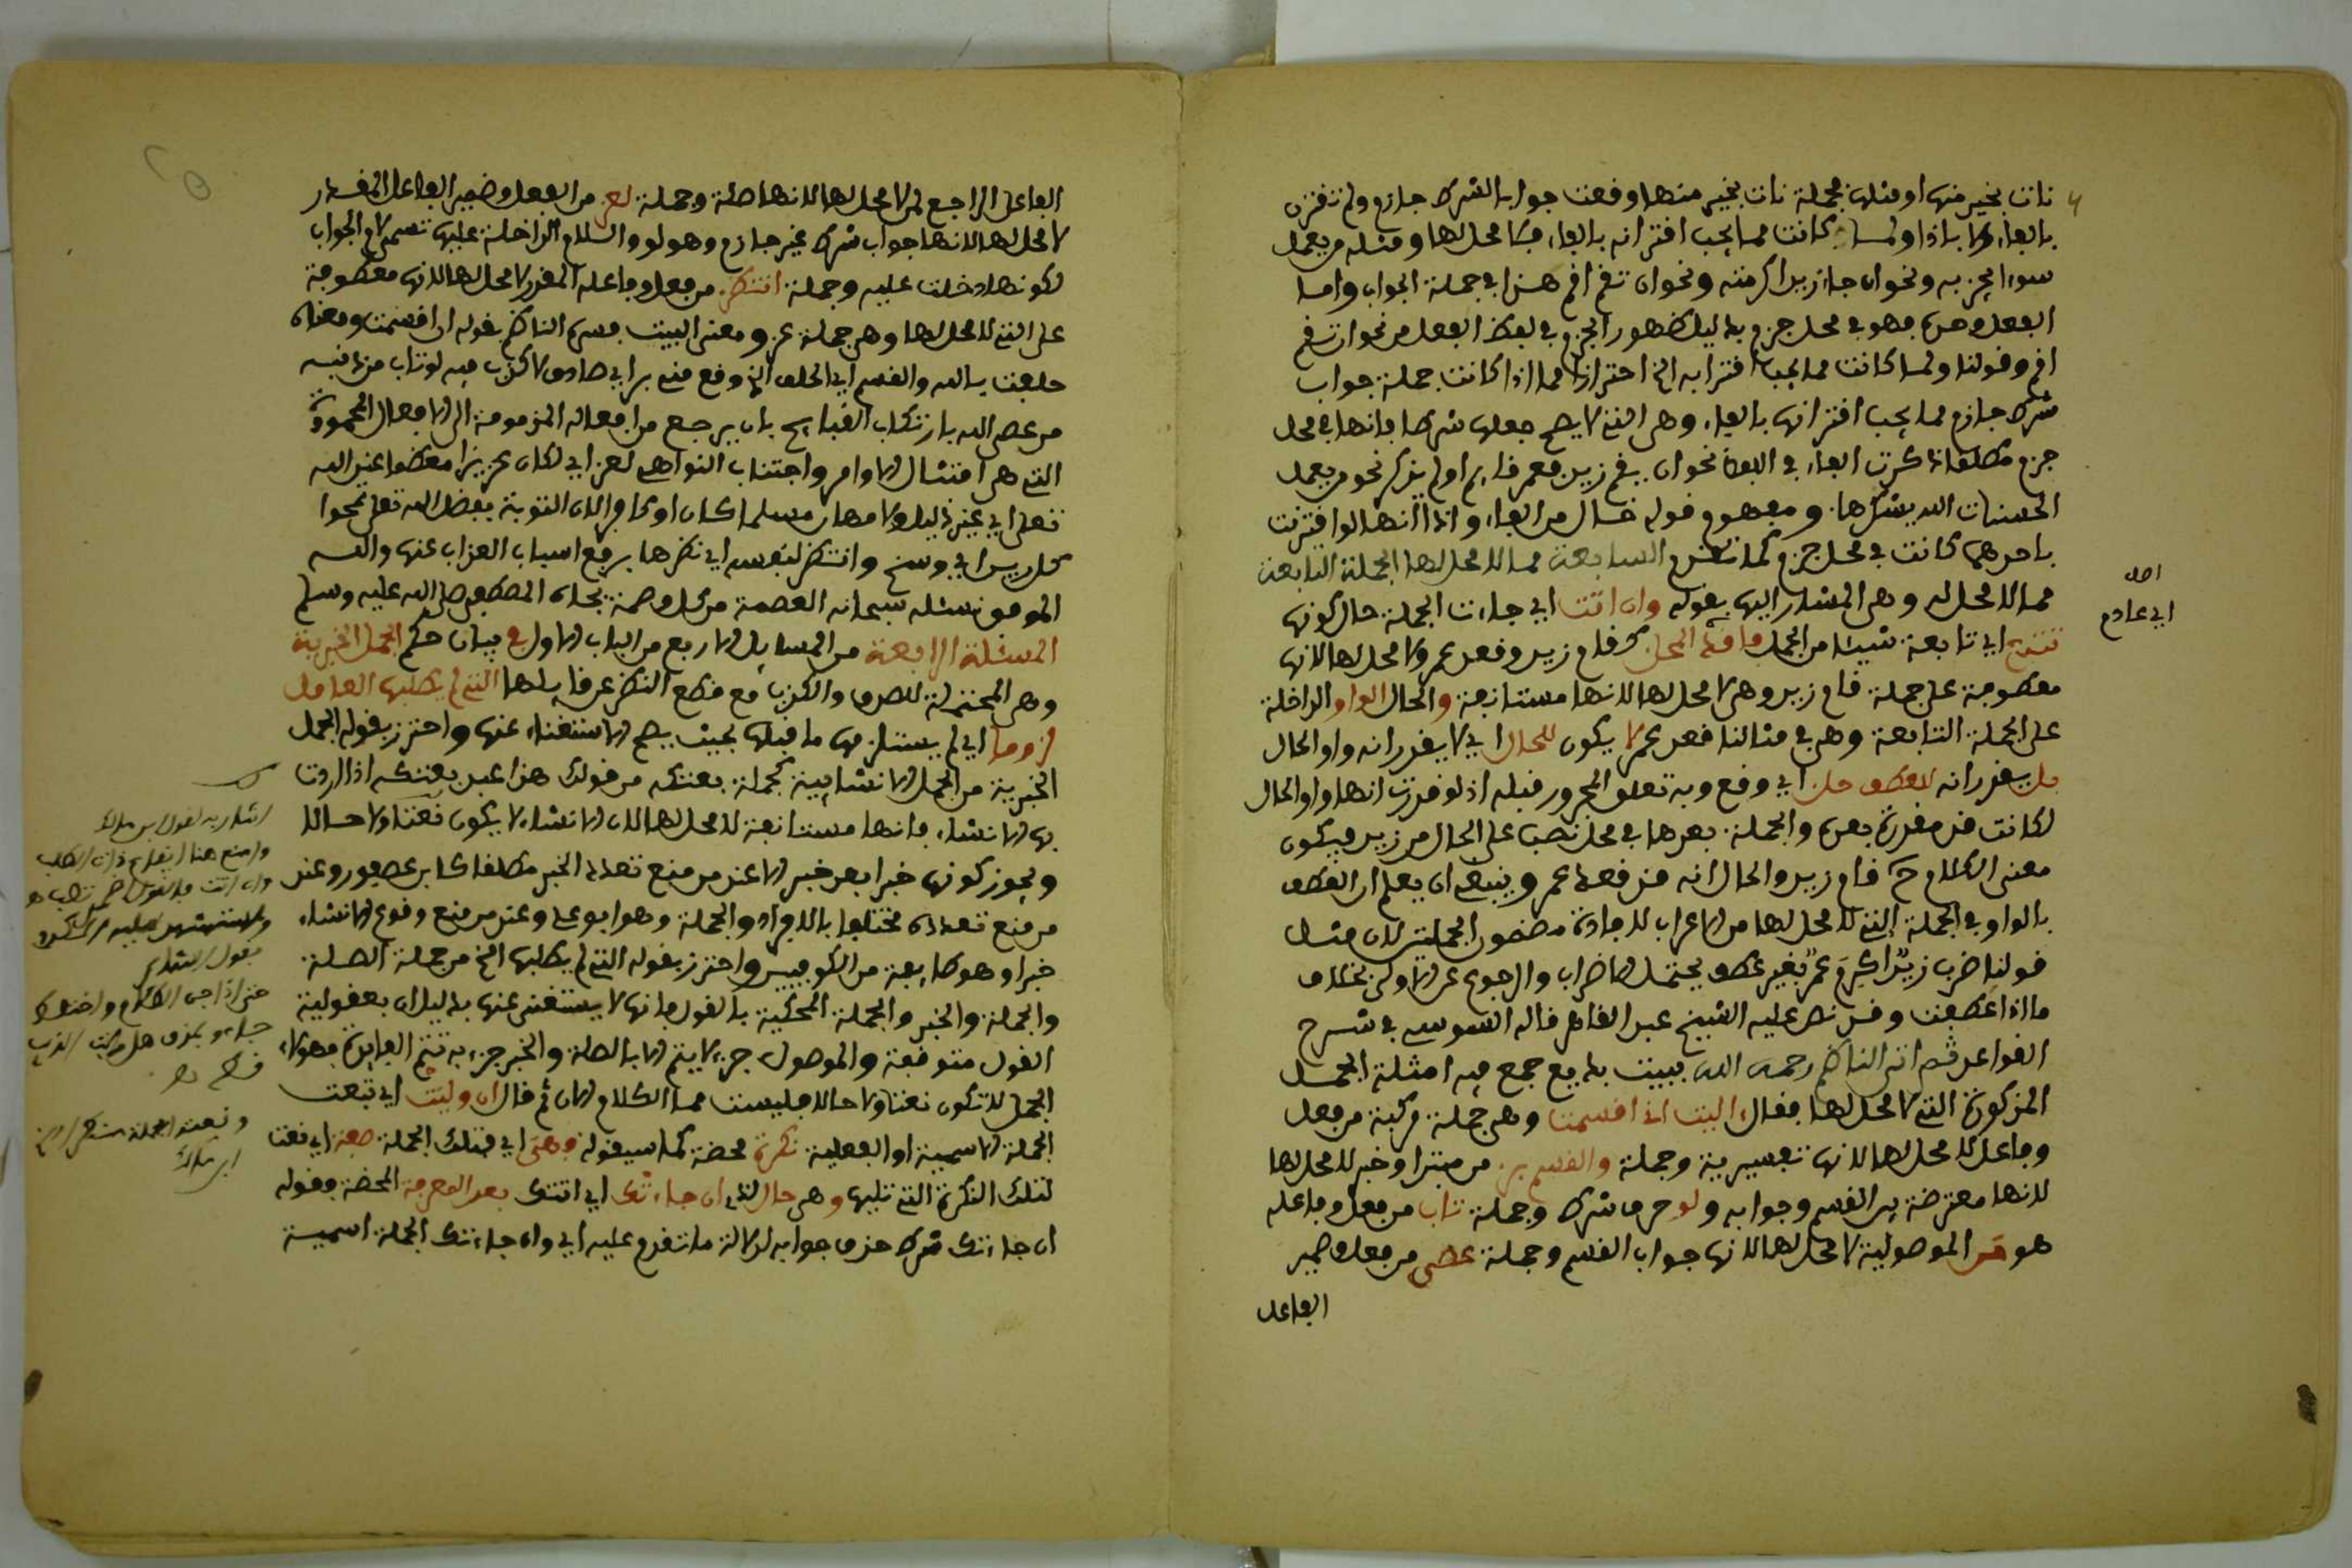 نات بخير منها او مثلها فجملة نات بخير منها وقعت جوابا لشرط جازم ولم تقترن
بالفاء ولا باذا ولما كانت مما يجب اقترانه بالفاء فلا محل لها ومثله من يعمل
سوءا يجز به ونحو ان جاء زيد اكرمته ونحو ان تقم اقم هذا في جملة الجواب واما
الفعل وحده فهو في محل جزم بدليل ظهور الجزم في لفظ الفعل من نحو ان تقم
اقم وقولنا ولما كانت مما يجب اقترانه الخ احترازا مما اذا كانت جملة جواب
شرط جازم مما يجب اقترانها بالفاء وهي التي لا يصح جعلها شرطا فانها في محل
جزم مطلقا ذكرت الفاء في اللفظ نحو ان يقم زيد فعمرو قايم او لم يذكر نحو من يفعل
الحسنات الله يشكرها ومفهوم قوله خال من الفاء واذا انها لو اقترنت
باحدهما كانت في محل جزم كما تقدم السابعة مما لا محل لها الجملة التابعة
مما لا محل له وهي المشار اليها بقوله وان اتت اي جاءت الجملة حال كونها
تتبع اي تابعة شيئا من الجمل فاقد المحل كقام زيد وقعد عمرو لا محل لها لانها
معطوفة على جملة قام زيد وهي لا محل لها لانها مستانفة والحال الواو الداخلة
على الجملة التابعة وهي في مثالنا قعد عمرو لا يكون للحال اي لا يقدر انه واو الحال
بل يقدر انه للعطف حل اي وقع وبه تعلق المجرور قبله اذ لو قدرت انها واو الحال
لكانت قد مقدرة بعده والجملة بعدها في محل نصب على الحال من زيد فيكون
معنى الكلام ح قام زيد والحال انه قد قعد عمرو وينبغي ان يعلم ان العطف
بالواو في الجملة التي لا محل لها من الاعراب لافادة مضمون الجملتين لان مثل
قولنا ضرب زيد اكرم عمرو بغير عطف يحتمل الاضراب والرجوع عن الاول بخلاف
ما اذا عطفت وقد نص عليه الشيخ عبد القاهر قاله السوسي في شرح
القواعد ثم اتى الناظم رحمه الله ببيت بديع جمع فيه امثلة الجمل
المذكورة التي لا محل لها فقال اليت اذ اقسمت وهي جملة مركبة من فعل
وفاعل لا محل لها لانها تفسيرية وجملة والقسم بر من مبتدا وخبر لا محل لها
لانها معترضة بين القسم وجوابه ولو حرف شرط وجملة تاب من فعل وفاعله
هو من الموصولية لا محل لها لانها جواب القسم وجملة عصى من فعل وضمير
الفاعل
اصله
اي عادم
الفاعل الراجع لمن لا محل لها لانها صلة وجملة لعز من الفعل وضمير الفاعل المقدر
لا محل لها لانها جواب شرط غير جازم وهو لو والسلام الداخلة عليها تسمى لام الجواب
لكونها دخلت عليه وجملة انتظر من فعل وفاعله المقدر لا محل لها لانها معطوفة
على التي لا محل لها وهي جملة عز ومعنى البيت فسره الناظم بقوله اذ اقسمت ومعناه
حلفت بالله والقسم اي الحلف الذي وقع منه بر اي صادق لا كذب فيه لو تاب من ذنبه
من عصى الله بارتكاب القبايح بان يرجع من افعاله المذمومة الى الافعال المحمودة
التي هي امتثال الاوامر واجتناب النواهي لعز اي لكان عزيزا معظما عند الله
تعلى اي غير ذليل ولا مهان مسلما كان او كافرا لان التوبة بفضل الله تعلى تمحوا
كل ريس اي وسخ وانتظر لنفسه اي نظرها برفع اسباب العذاب عنها والله
الموفق نسئله سبحانه العصمة من كل وصمة بجاه المصطفى صلى الله عليه وسلم
المسئلة الرابعة من المسايل الاربع من الباب الاول في بيان حكم الجمل الخبرية
وهي المحتملة للصدق والكذب مع قطع النظر عن قايلها التي لم يطلبها العامل
لزوما اي لم يستلزمها ما قبلها بحيث يصح الاستغناء عنها واحترز بقوله الجمل
الخبرية من الجمل الانشايية كجملة بعتكه من قولك هذا عبد بعتكه اذا اردت
بها الانشاء فانها مستانفة لا محل لها لان الانشاء لا يكون نعتا ولا حالا
ويجوز كونها خبرا بعد خبر الا عند من منع تعدد الخبر مطلقا كابن عصفور وعند
من منع تعدده مختلفا بالافراد والجملة وهو ابو علي وعند من منع وقوع الانشاء
خبرا وهو طايفة من الكوفيين واحترز بقوله التي لم يطلبها الخ من جملة الصلة
والجملة والخبر والجملة المحكية بالقول فانها لا يستغنى عنها بدليل ان معقولية
القول متوقفة والموصول جزء لا يتم الا بالصلة والخبر جزء به تتم الفايدة فهؤلاء
الجمل لا تكون نعتا ولا حالا فليست مما الكلام الان ثم قال ان وليت اي تبعت
الجملة الاسمية او الفعلية نكرة محضة كما سيقوله فهي اي فتلك الجملة صفة اي نعت
لتلك النكرة التي تليها وهي حال لذي ان جاءتك اي اتتك بعد المعرفة المحضة فقوله
ان جاءتك شرط حذف جوابه لدلالة ما تقدم عليه اي وان جاءتك الجملة اسمية
اشار به لقول ابن مالك
وامنع هنا ايقاع ذات الطلب
وان اتت فالقول اضمر تصب
بقول الشاعر
حتى اذا جن الظلام واختلط
جاءوا بمذق هل رايت الذيب
قط
ابن مالك